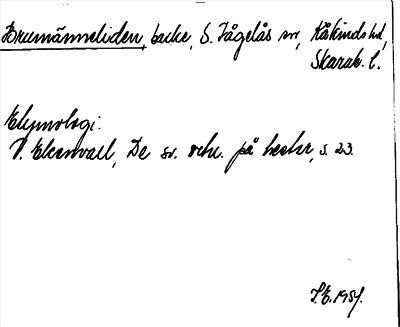 Brumänneliden, backe, S. Fågelås sn, Kåkinds hd,
Skarab. l.
Etymologi:
V. Ekenvall, De sv. ortn. på
s. 23.
1954.